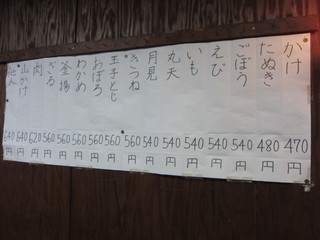 かけ 470円
たぬき 480円
ごぼう 540円
えび 540円
いも 540円
丸天 540円
月見 540円
きつね 560円
玉子とじ 560円
おぼろ 560円
わかめ 560円
釜揚 560円
ざる 560円
肉 620円
山かけ 640円
他人 640円